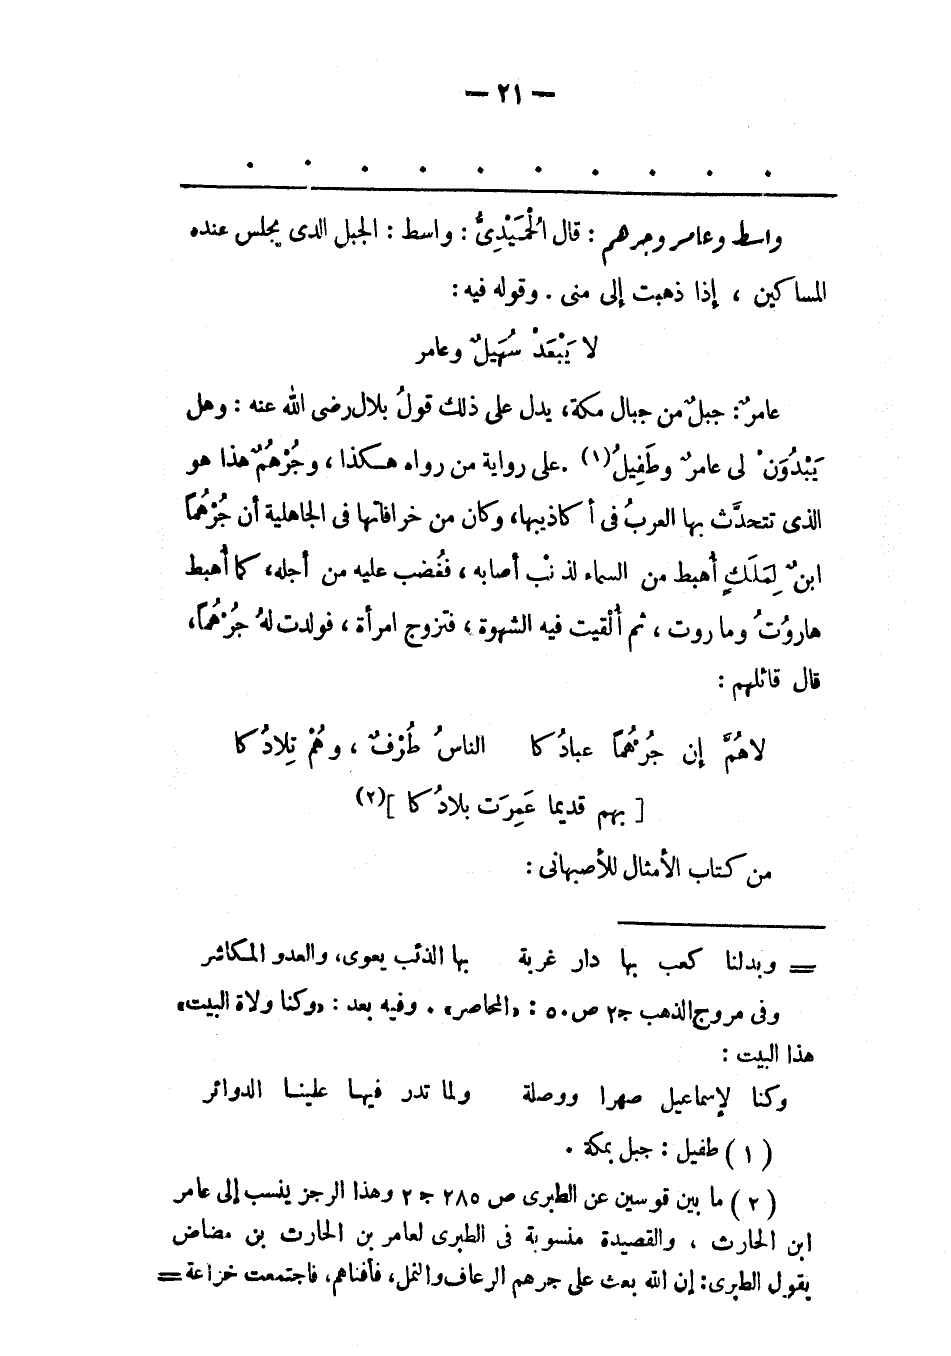 — ٢١ —
. . . . . . . . . .
واسط وعامر وجرهم : قال الْحُمَيْدِىُّ : واسط : الجبل الذى يجلس عنده
المساكين ، إذا ذهبت إلى منى . وقوله فيه :
لا يَبْعَدْ سُهَيلٌ وعامر
عامرٌ : جبلٌ من جبال مكة، يدل على ذلك قولُ بلال رضى الله عنه : وهل
يَبْدُوَنْ لى عامرٌ وطَفِيلُ(١) . على رواية من رواه هـكذا ، وجُرْهُمٌ هذا هو
الذى تتحدَّث بها العربُ فى أكاذيبها، وكان من خرافاتها فى الجاهلية أن جُرْهُمًا
ابنٌ لِمَلَكٍ أُهبط من السماء لذنْب أصابه ، فغُضب عليه من أجله، كما أُهبط
هاروُتُ وماروت ، ثم أُلْقيت فيه الشهوة ، فتزوج امرأة ، فولدت لهُ جُرْهُمًا،
قال قائلهم :
لاهُمَّ إن جُرْهُمًا عبادُكا الناسُ طُرْفٌ ، وهُمْ تِلادُكا
[ بهم قديما عَمِرَت بلادُكا ](٢)
من كتاب الأمثال للأصبهانى :
= وبدلنا كعب بها دار غربة بها الذئب يعوى، والعدو المكاشر
وفى مروج الذهب ج٢ ص٥٠ : «المحاصر» . وفيه بعد : «وكنا ولاة البيت»
هذا البيت :
وكنا لإسماعيل صهرا ووصلة ولما تدر فيها علينا الدوائر
(١) طفيل : جبل بمكة .
(٢) ما بين قوسين عن الطبرى ص ٢٨٥ ج ٢ وهذا الرجز ينسب إلى عامر
ابن الحارث ، والقصيدة منسوبة فى الطبرى لعامر بن الحارث بن مضاض
يقول الطبرى : إن الله بعث على جرهم الرعاف والنمل، فأفناهم، فاجتمعت خزاعة =